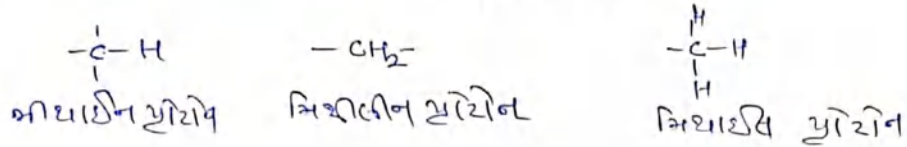 -C-H -CH2- H -C-H H
મીથાઈન પ્રોટોન મિથીલીન પ્રોટોન મિથાઈલ પ્રોટોન